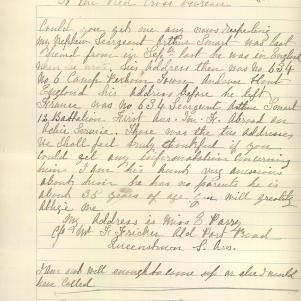 To the Red Cross Bureau
Could you get me any news respecting
my Nephew Sergeant Arthur Smart was last
heard from in Sept last he was in England
then his address then was No 634
No 6 Camp Perham Down Andover Hants
England his address before he left
France was No 634 Sergeant Arthur Smart
12 Battalion First Aus. Im. F. Abroad on
Active Service. Those was the two addresses
We shall feel truly thankful if you
could get any information concerning
him I am his aunt very anxious
about him he has no parents he is
about 35 years of age you will greatly
oblige me
My address is Miss E Parry
C/o Mr F Fricker Old Port Road
Queenstown S. Aus.
I am not well enough to come up or else I would
have called